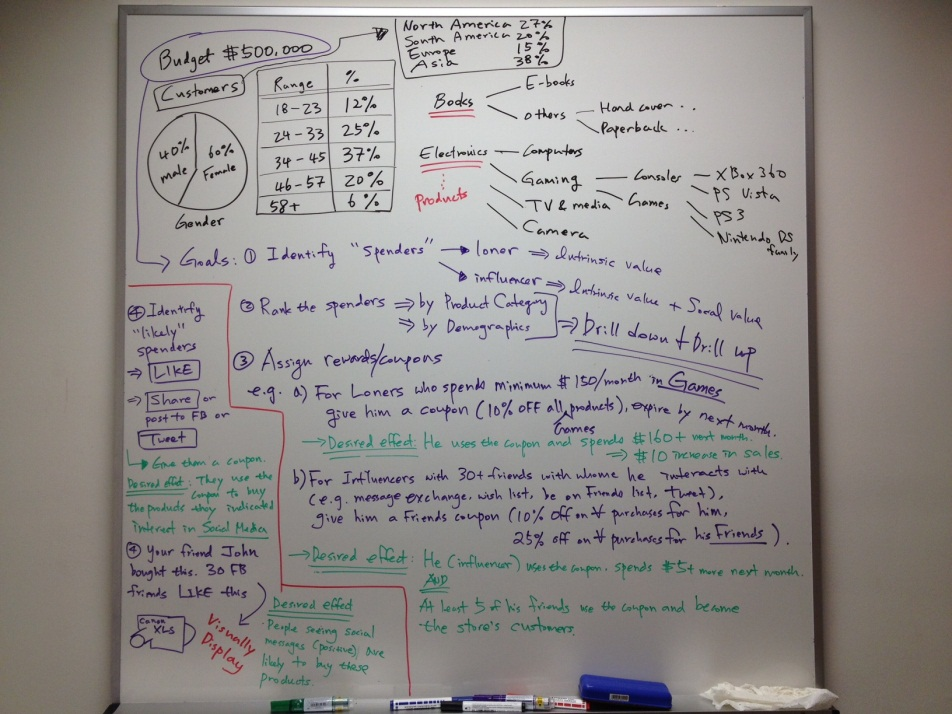 Budget $500,000
North America 27%
South America 20%
Europe 15%
Asia 38%
Customers
40% male
60% Female
Gender
Range %
18-23 12%
24-33 25%
34-45 37%
46-57 20%
58+ 6%
Books
E-books
others
Hand cover ..
Paperback ...
Electronics
Products
Computers
Gaming
TV & media
Camera
Consoler
Games
XBox 360
PS Vista
PS3
Nintendo DS
family
Goals: ① Identify "spenders" → loner ⇒ Intrinsic value
→ influencer ⇒ Intrinsic value + Social value
② Rank the spenders ⇒ by Product Category
⇒ by Demographics
⇒ Drill down + Drill up
③ Assign rewards/coupons
e.g. a) For Loners who spends minimum $150/month in Games
give him a coupon (10% OFF all products), expire by next month.
Games
→ Desired effect: He uses the coupon and spends $160+ next month.
⇒ $10 increase in sales.
b) For Influencers with 30+ friends with whome he interacts with
(e.g. message exchange, wish list, be on Friends list, tweet),
give him a Friends coupon (10% off on ∀ purchases for him,
25% off on ∀ purchases for his Friends).
→ Desired effect: He (influencer) uses the coupon. spends $5+ more next month.
AND
At least 5 of his friends use the coupon and become
the store's customers.
④ Identify
"likely"
spenders
⇒ LIKE
⇒ Share or
post to FB or
Tweet
↳ Give them a coupon.
Desired effet: They use the
coupon to buy
the products they indicated
interest in Social Media
④ Your friend John
bought this. 30 FB
friends LIKE this
Canon
XLS
Visually
Display
Desired effect
People seeing social
messages (positive), are
likely to buy these
Products.